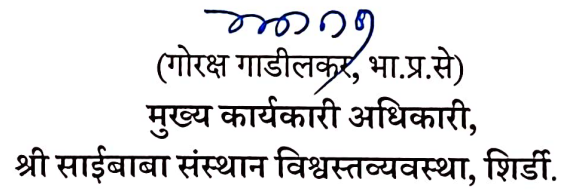 (गोरक्ष गाडीलकर, भा.प्र.से)
मुख्य कार्यकारी अधिकारी,
श्री साईबाबा संस्थान विश्वस्तव्यवस्था, शिर्डी.